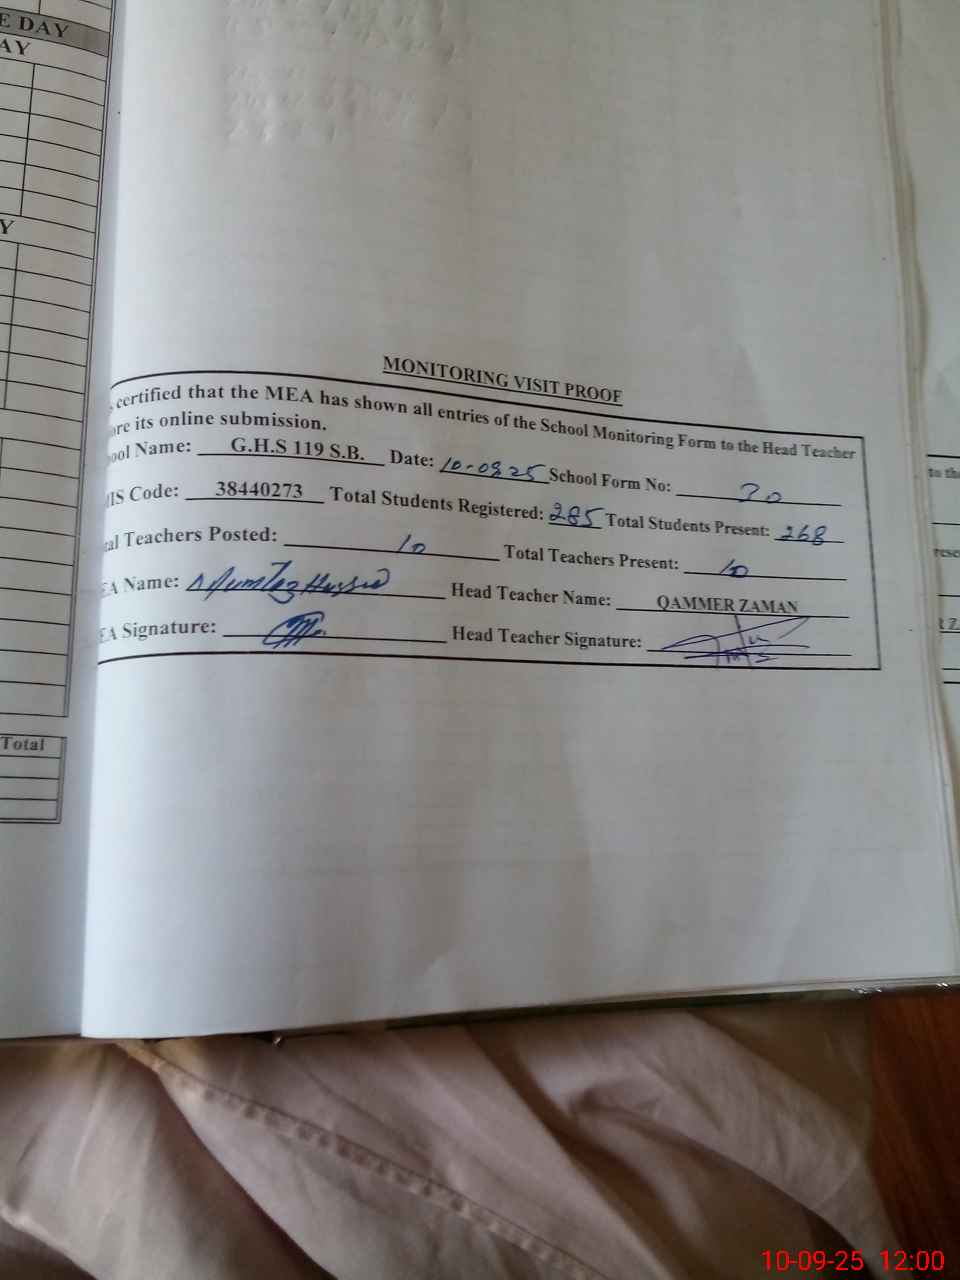 E DAY
AY
Y
Total
MONITORING VISIT PROOF
certified that the MEA has shown all entries of the School Monitoring Form to the Head Teacher
re its online submission.
ool Name: G.H.S 119 S.B. Date: 10-09-25 School Form No: 30
IS Code: 38440273 Total Students Registered: 285 Total Students Present: 268
al Teachers Posted: 10 Total Teachers Present: 10
EA Name: Mumtaz Hussain Head Teacher Name: QAMMER ZAMAN
EA Signature: Head Teacher Signature:
to the
rese
R Z
10-09-25 12:00